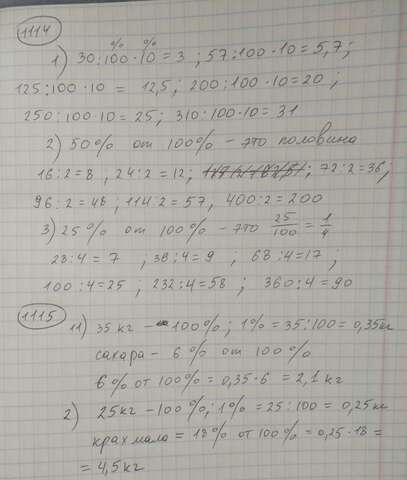 1114
% %
1) 30:100·10=3; 57:100·10=5,7;
125:100·10 = 12,5; 200:100·10=20;
250:100·10=25; 310:100·10=31
2) 50% от 100% - это половина
16:2=8, 24:2=12; 72:2=36;
96:2=48; 114:2=57, 400:2=200
3) 25% от 100% - это 25/100 = 1/4
28:4=7, 36:4=9, 68:4=17;
100:4=25; 232:4=58; 360:4=90
1115
1) 35 кг - 100%; 1%=35:100=0,35кг
сахара - 6% от 100%
6% от 100% = 0,35·6 = 2,1 кг
2) 25кг - 100%; 1%=25:100=0,25кг
крахмала = 18% от 100% = 0,25·18=
= 4,5кг